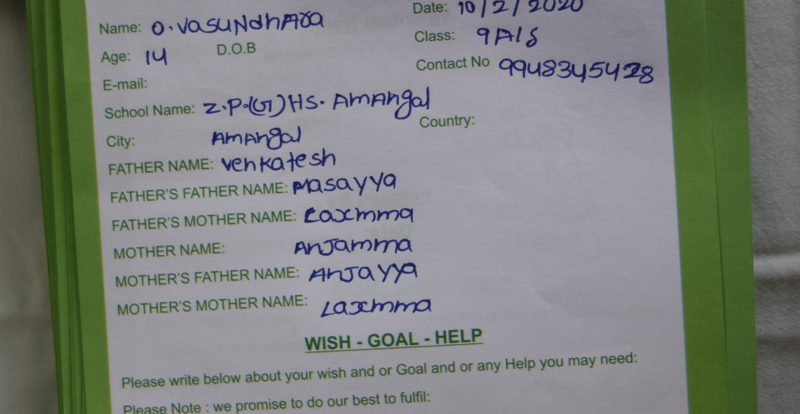 Name: O. VASUNdHARA Date: 10/2/2020
Age: 14 D.O.B Class: 9A/S
E-mail: Contact No 9948345428
School Name: Z.P.(G)HS. AMAngal
City: AMAngal Country:
FATHER NAME: Venkatesh
FATHER'S FATHER NAME: Masayya
FATHER'S MOTHER NAME: Laxmma
MOTHER NAME: Anjamma
MOTHER'S FATHER NAME: AnJayya
MOTHER'S MOTHER NAME: Laxmma
WISH - GOAL - HELP
Please write below about your wish and or Goal and or any Help you may need:
Please Note : we promise to do our best to fulfil: